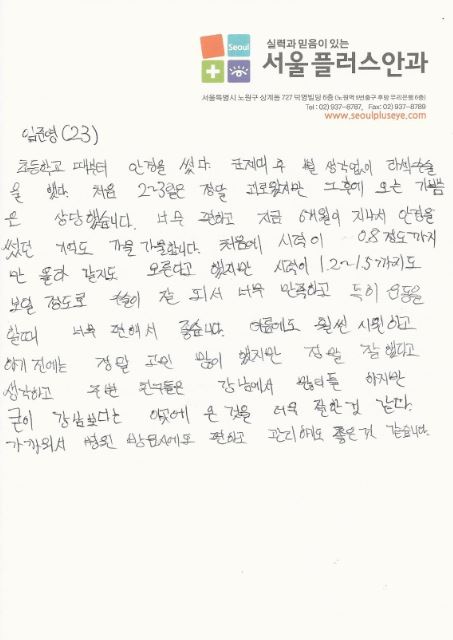 Seoul
실력과 믿음이 있는
서울플러스안과
서울특별시 노원구 상계동 727 덕영빌딩 6층 (노원역 9번출구 후방 우리은행 6층)
Tel : 02) 937-6767, Fax: 02) 937-8789
www.seoulpluseye.com
임준영 (23)
초등학교 때부터 안경을 썼다. 군제대 후 별 생각없이 라섹수술
을 했다. 처음 2~3일은 정말 괴로웠지만 그후에 오는 기쁨
은 상당했습니다. 너무 편하고 지금 6개월이 지나서 안경을
썼던 적도 가물가물합니다. 처음에 시력이 0.8 정도까지
만 올라 갈지도 모른다고 했지만 시력이 1.2~1.5 까지도
보일 정도로 수술이 잘 되서 너무 만족하고 특히 운동을
할때 너무 편해서 좋습니다. 여름에도 훨씬 시원하고
하기 전에는 정말 고민 많이 했지만 정말 잘 했다고
생각하고 주변 친구들은 강남에서 많이들 하지만
굳이 강남보다는 이곳에 온 것을 더욱 잘한 것 같다.
가까워서 병원 방문시에도 편하고 관리해도 좋은 것 같습니다.